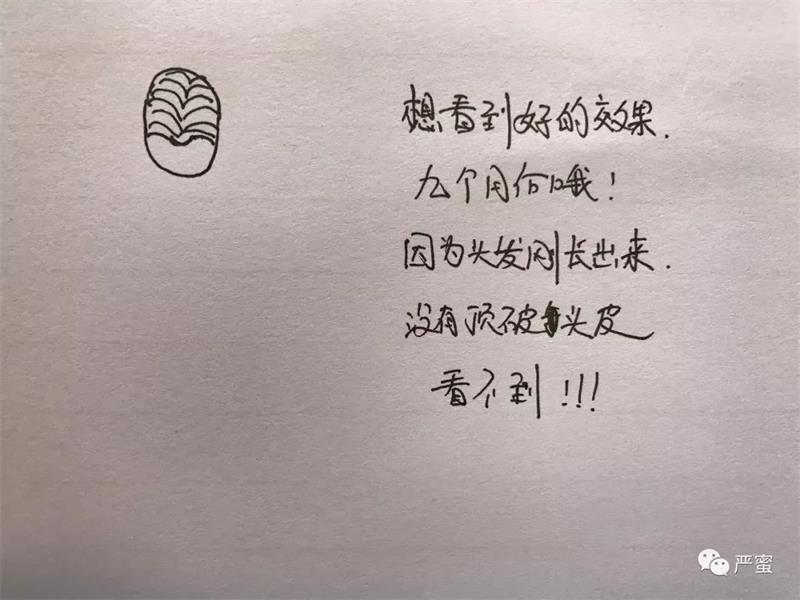 想看到好的效果.
九个月价哦!
因为头发刚长出来.
没有顶破头皮
看不到!!!
严蜜